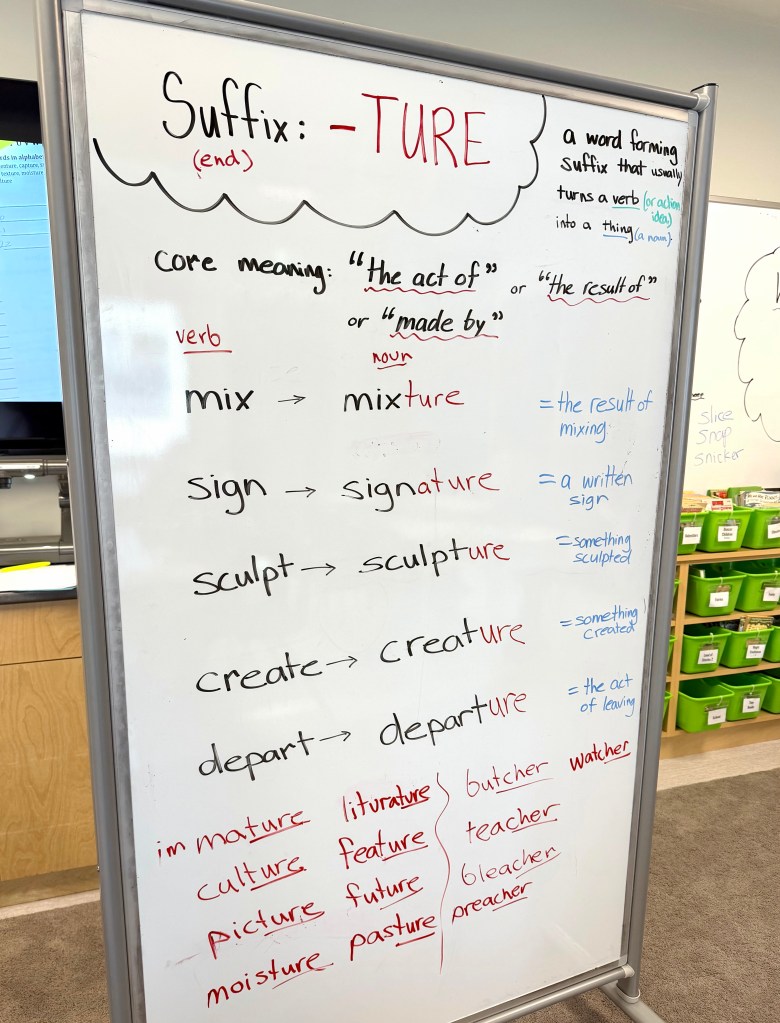 Suffix: -TURE
(end)
a word forming
suffix that usually
turns a verb (or action idea)
into a thing (a noun)
core meaning: "the act of" or "the result of"
or "made by"
verb noun
mix → mixture = the result of mixing
sign → signature = a written sign
sculpt → sculpture = something sculpted
create → creature = something created
depart → departure = the act of leaving
immature liturature butcher watcher
culture feature teacher
picture future bleacher
moisture pasture preacher
slice
snap
snicker